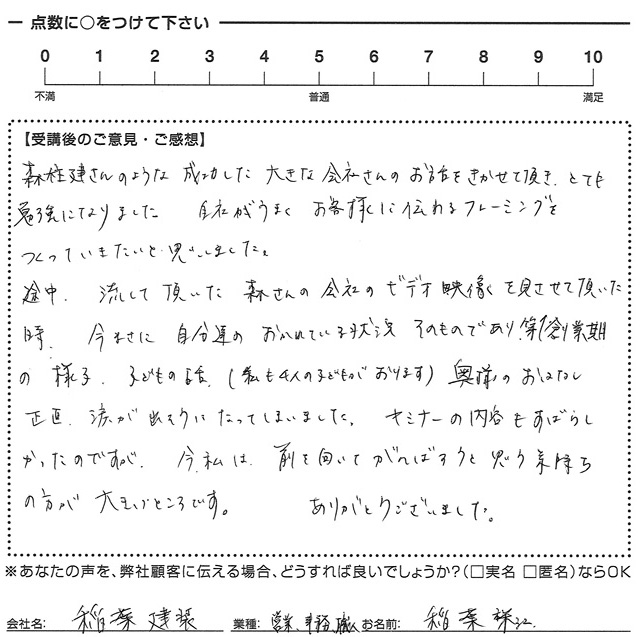 点数に○をつけて下さい
0 1 2 3 4 5 6 7 8 9 10
不満 普通 満足
【受講後のご意見・ご感想】
森住建さんのような 成功した 大きな 会社さんの お話をきかせて頂き、とても
勉強になりました 自社がうまく お客様に伝わるフレーミングを
つくっていきたいと思いました。
途中、流して頂いた 森さんの会社のビデオ映像を見させて頂いた
時、今まさに 自分達の おかれている状況 そのものであり、第1創業期
の 様子、子どもの話、(私も4人の子どもがおります) 奥様のおはなし
正直、涙が出そうになってしまいました。セミナーの内容もすばらし
かったのですが、今、私は、前を向いてがんばろうと思う気持ち
の方が 大きいところです。 ありがとうございました。
※あなたの声を、弊社顧客に伝える場合、どうすれば良いでしょうか?(□実名 □匿名)ならOK
会社名: 稲葉建装 業種: 営業、事務職 お名前: 稲葉